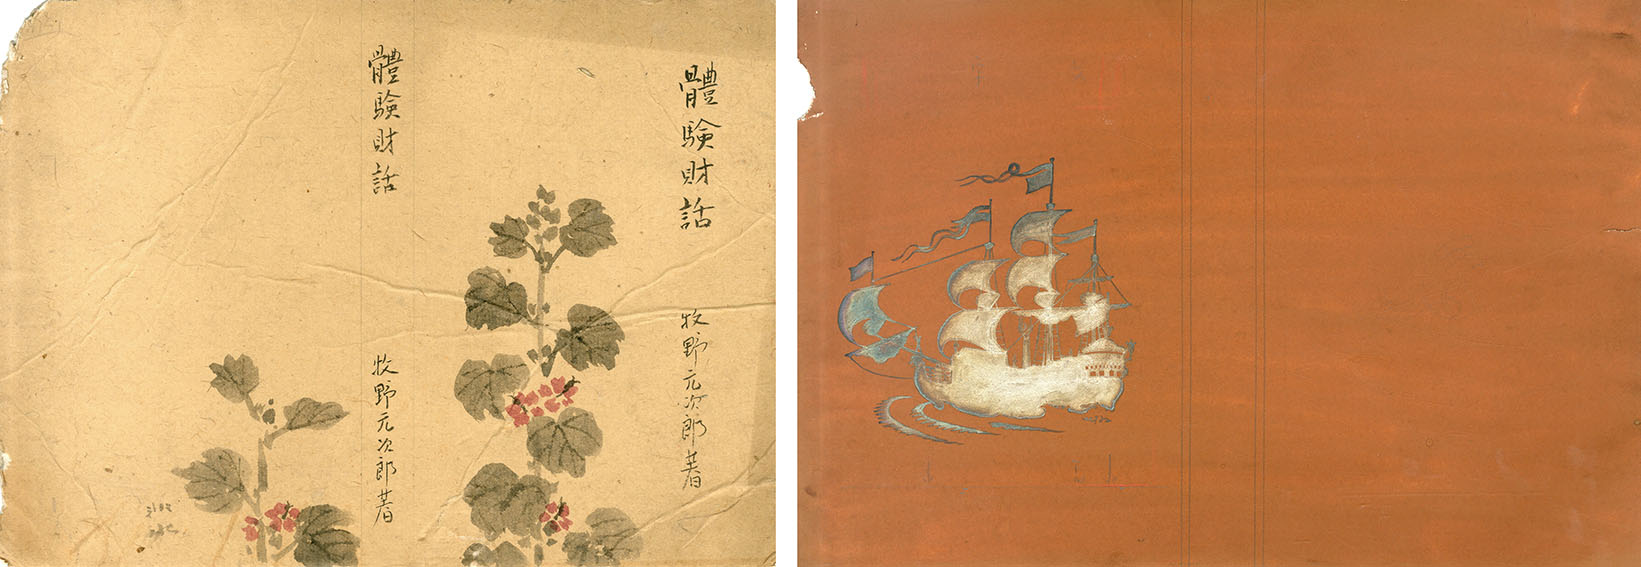 體験財話
牧野元次郎著
體験財話
牧野元次郎著